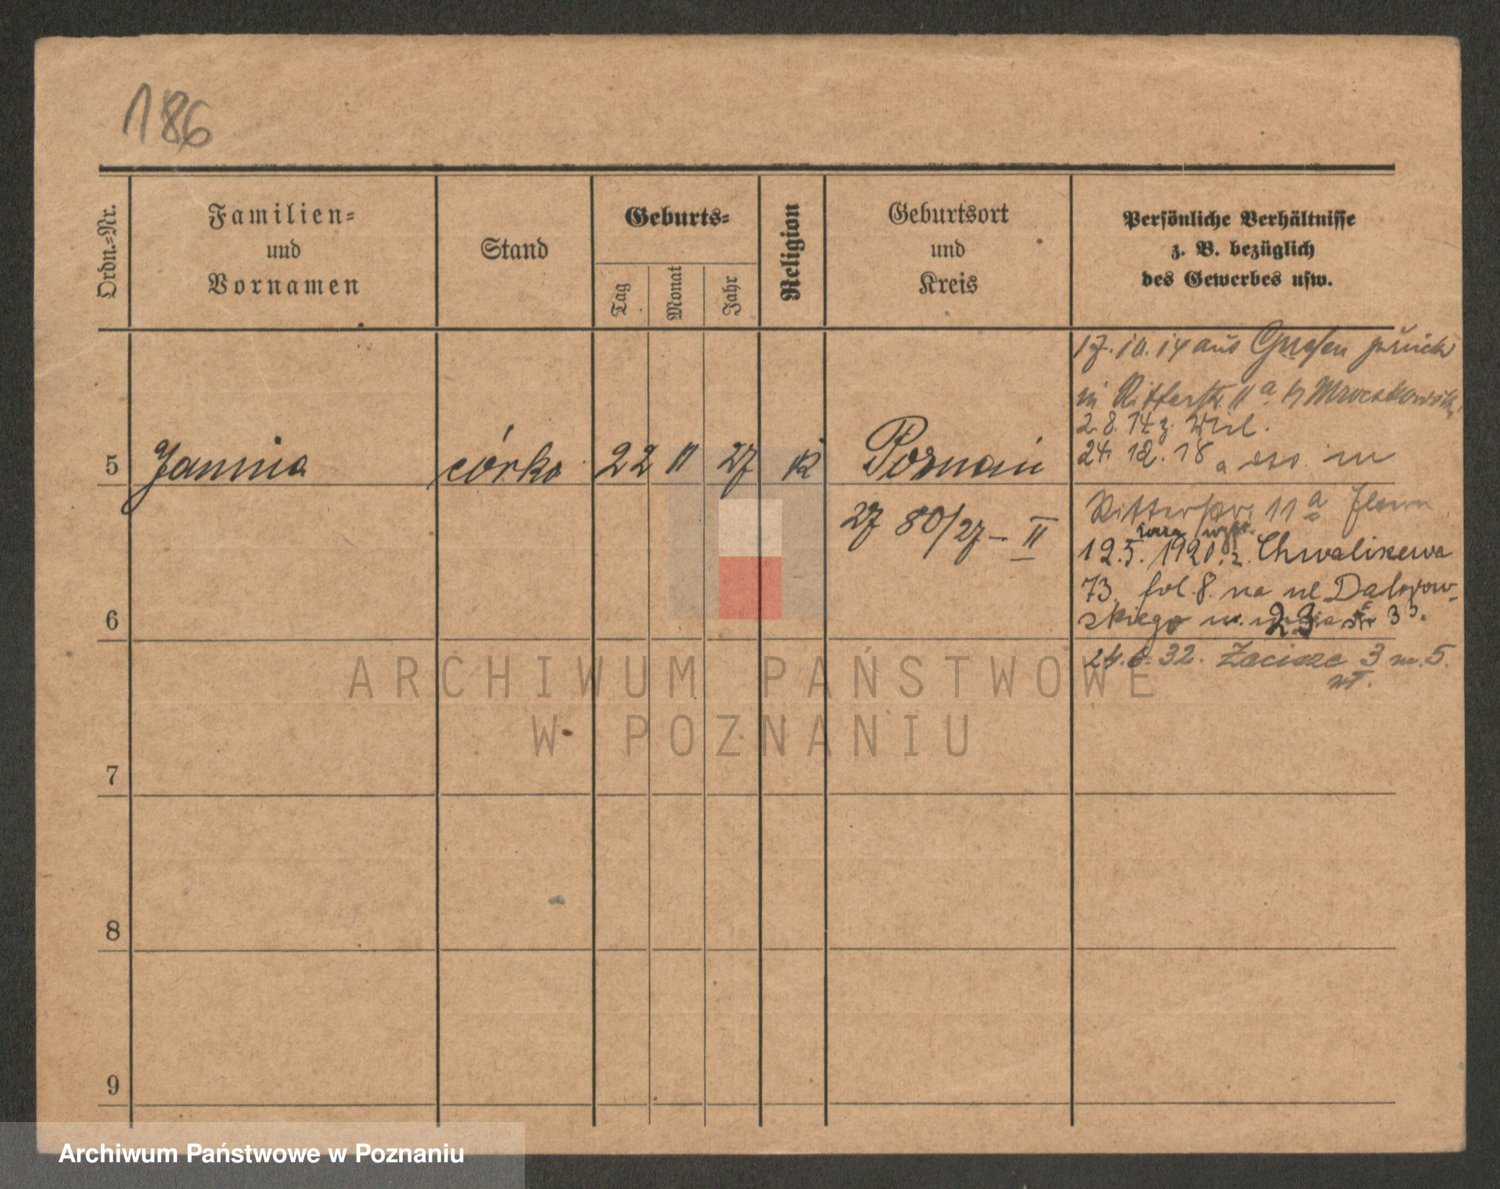 186
Ordn.=Nr.
Familien=
und
Vornamen
Stand
Geburts=
Tag
Monat
Jahr
Religion
Geburtsort
und
Kreis
Persönliche Verhältnisse
z. B. bezüglich
des Gewerbes usw.
17.10.14 aus Gnesen zurück
in Ritterstr 11a b/ Mroczkowski
2.8.14 z. Mil.
24.12.18
5 Janina córka 22 II 27 K Poznań
27 80/27 – II
Ritterstr. 11a
12.5.1920. z. Chwaliszewa
73. fol. 8. na ul. Dąbrow-
skiego 23 33.
24.6.32. Zacisze 3 m. 5.
6
7
8
9
ARCHIWUM PAŃSTWOWE
W POZNANIU
Archiwum Państwowe w Poznaniu